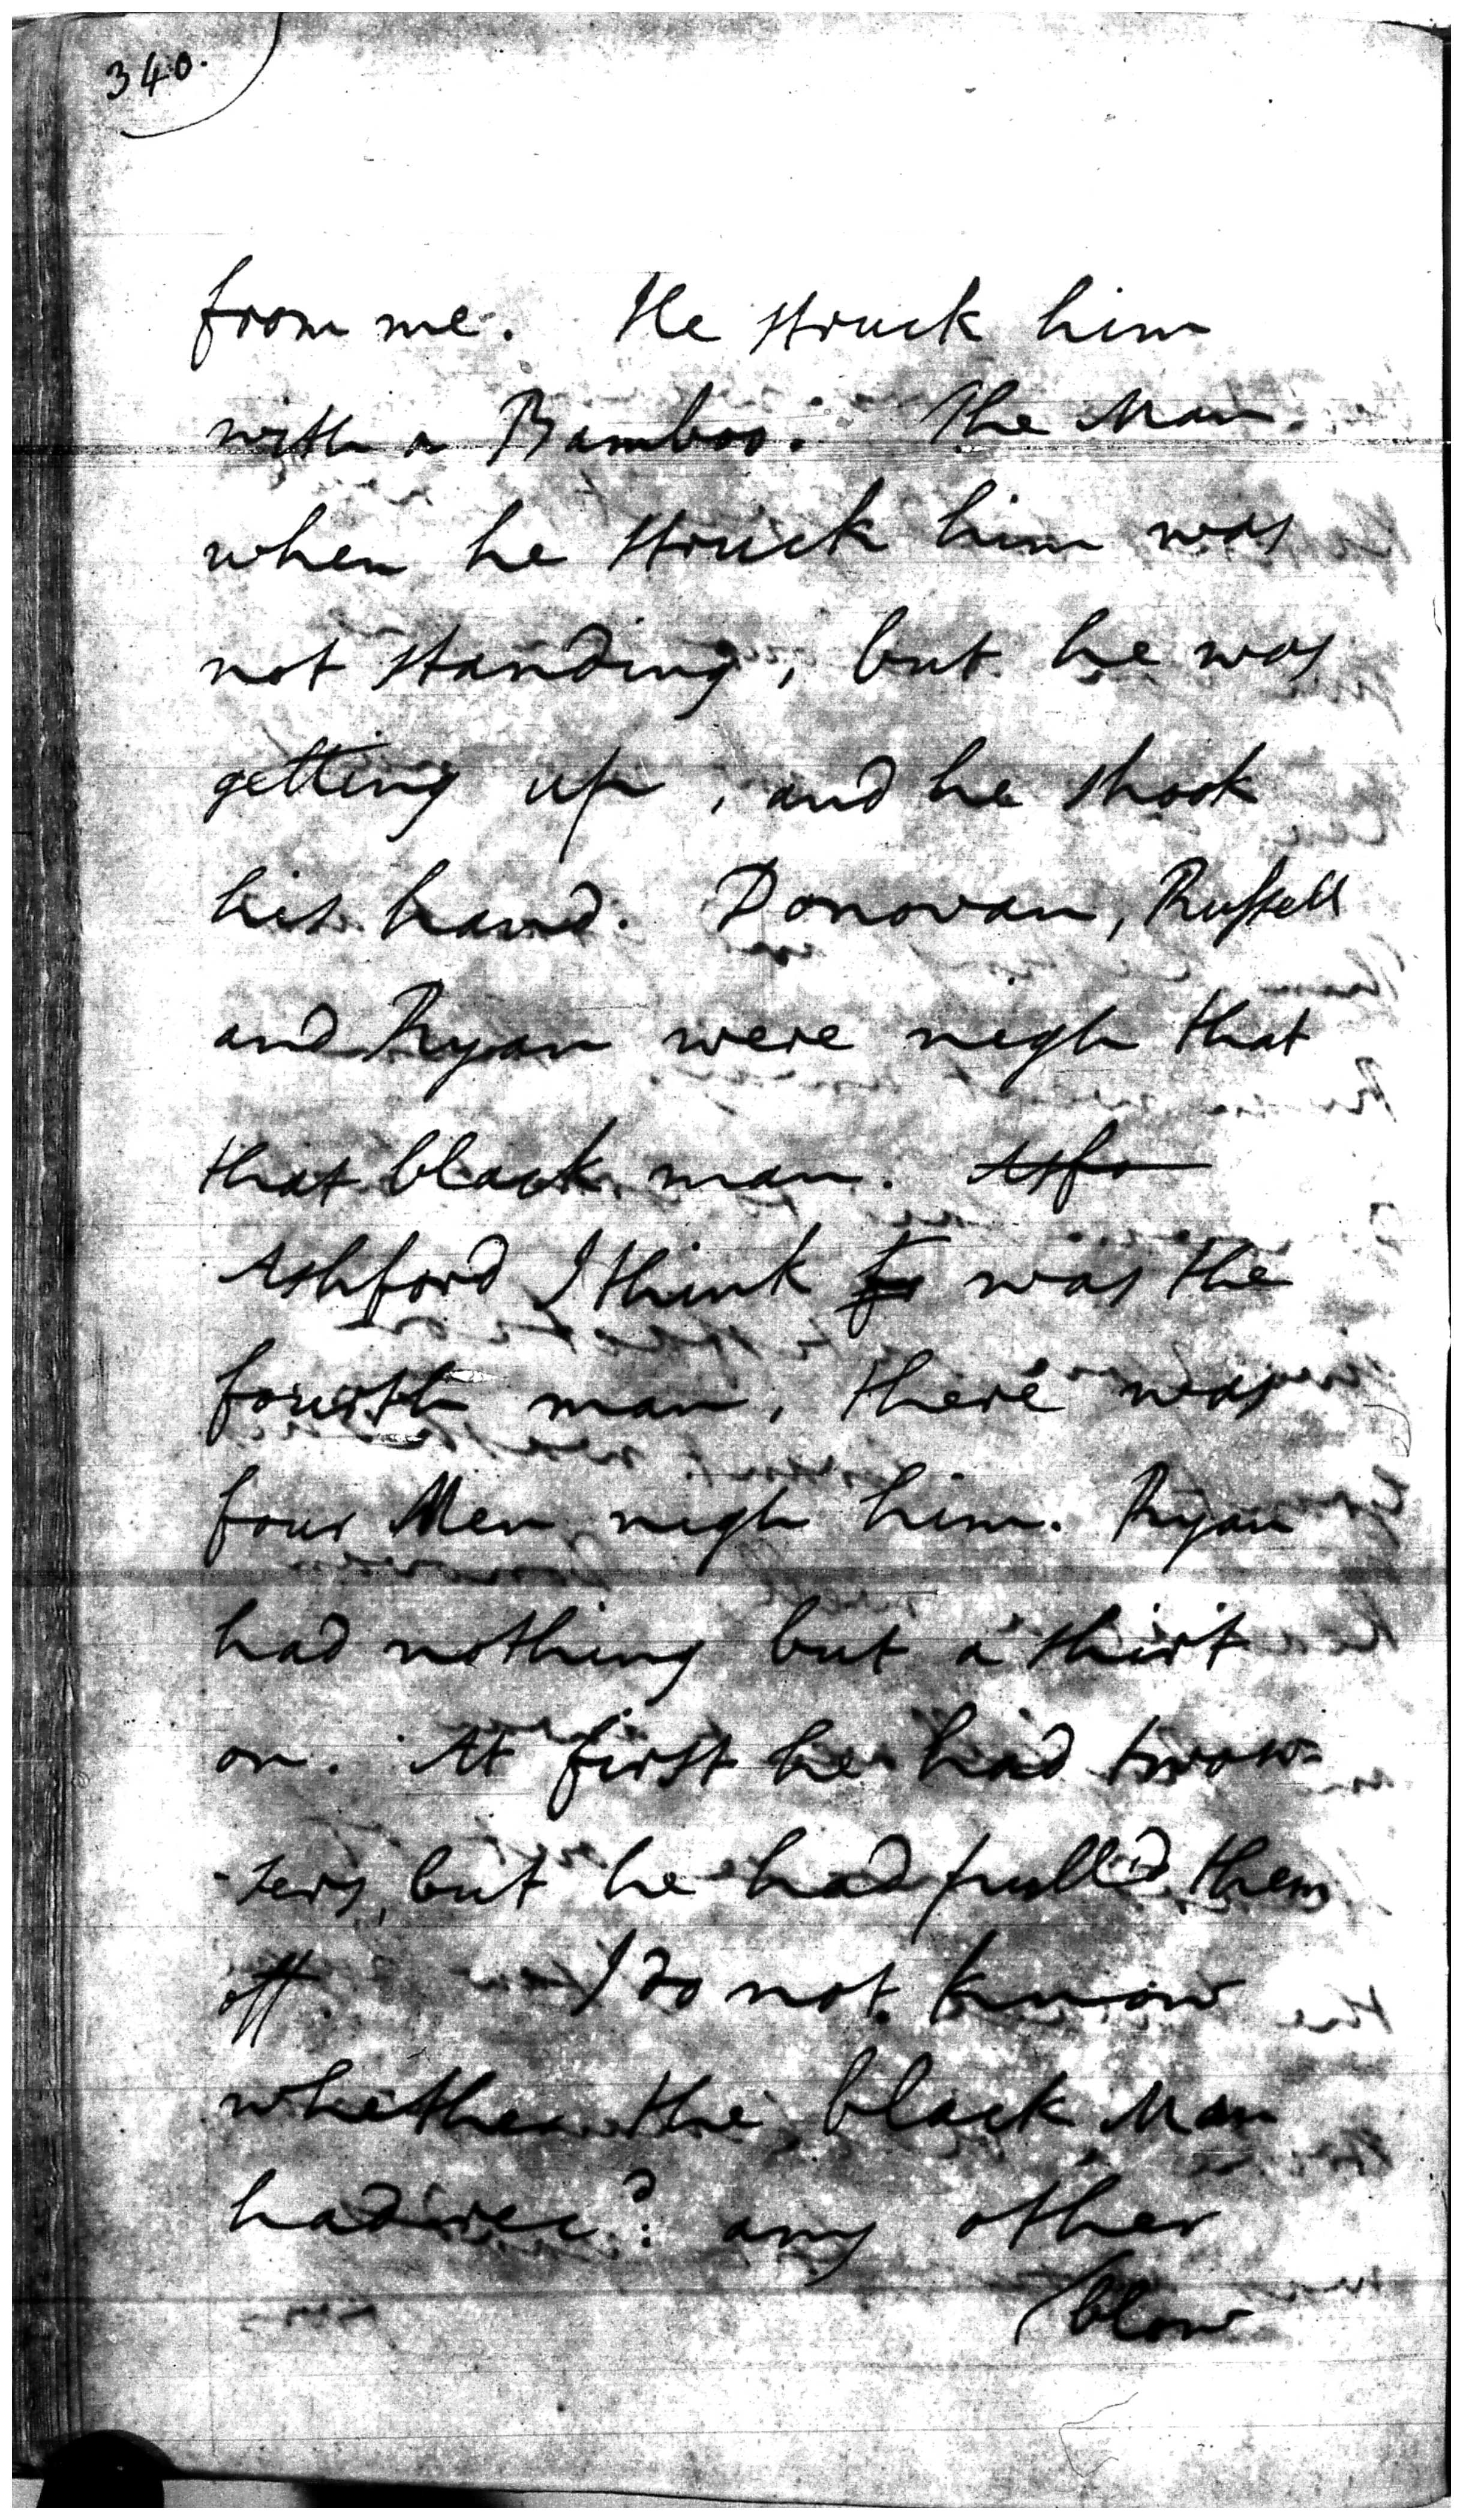 340.
from me. He struck him
with a Bamboo. The Man
when he struck him was
not standing, but he was
getting up, and he shook
his hand. Donovan, Russell
and Ryan were nigh that
that black man. Asfo
Ashford I think fo was the
fourth man, there was
four Men nigh him. Ryan
had nothing but a shirt
on. At first he had trow-
-sers, but he had pull'd them
off. I do not know
whether the black Man
had rec'd: any other
(blow